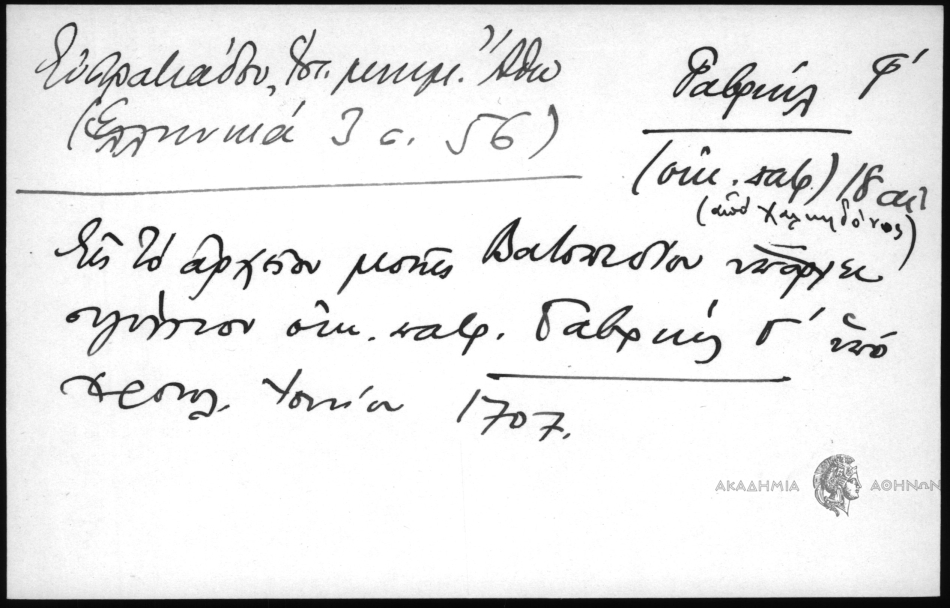 Εὐστρατιάδου, Ἱστ. μνημ. Ἄθω
(Ἑλληνικά 3 σ. 56)
Γαβριήλ Γ'
(οἰκ. πατρ.) 18 αἰ
(ἀπό Χαλκηδόνος)
Εἰς τό ἀρχεῖον μονῆς Βατοπεδίου ὑπάρχει
σιγίλλιον οἰκ. πατρ. Γαβριήλ Γ' ὑπό
χρονολ. Ἰουνίου 1707.
ΑΚΑΔΗΜΙΑ ΑΘΗΝΩΝ